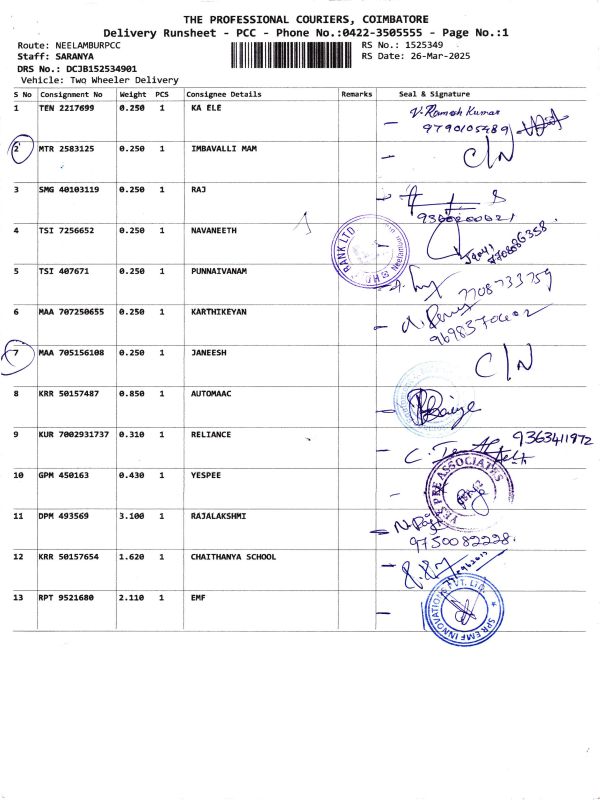 THE PROFESSIONAL COURIERS, COIMBATORE
Delivery Runsheet - PCC - Phone No.:0422-3505555 - Page No.:1
Route: NEELAMBURPCC RS No.: 1525349
Staff: SARANYA RS Date: 26-Mar-2025
DRS No.: DCJB152534901
Vehicle: Two Wheeler Delivery
S No Consignment No Weight PCS Consignee Details Remarks Seal & Signature
1 TEN 2217699 0.250 1 KA ELE V. Ramesh Kumar
9790105489
2 MTR 2583125 0.250 1 IMBAVALLI MAM C/N
3 SMG 40103119 0.250 1 RAJ
4 TSI 7256652 0.250 1 NAVANEETH
BANK LTD
5 TSI 407671 0.250 1 PUNNAIVANAM
7708733759
6 MAA 707250655 0.250 1 KARTHIKEYAN
7 MAA 705156108 0.250 1 JANEESH C/N
8 KRR 50157487 0.850 1 AUTOMAAC
9 KUR 7002931737 0.310 1 RELIANCE 9363411972
10 GPM 450163 0.430 1 YESPEE
YES PEE ASSOCIATES
11 DPM 493569 3.100 1 RAJALAKSHMI
9750082228
12 KRR 50157654 1.620 1 CHAITHANYA SCHOOL
13 RPT 9521680 2.110 1 EMF
SPR EMF INNOVATIONS PVT. LTD.